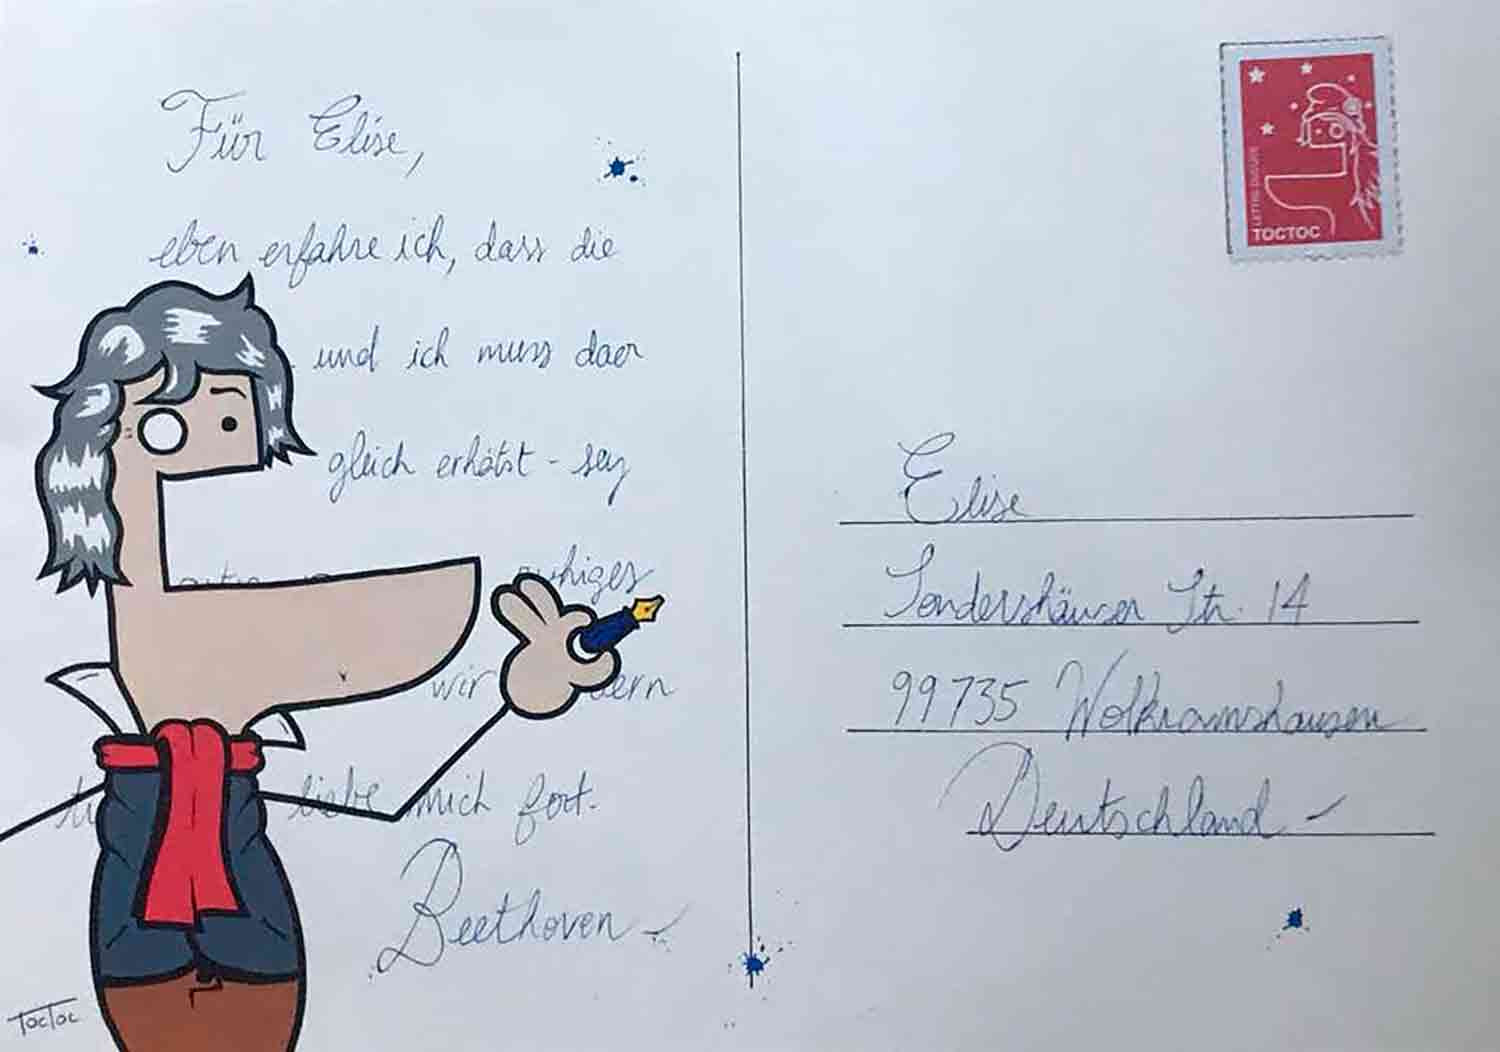 Für Elise,
eben erfahre ich, dass die
und ich muss daer
gleich erhätst - sey
ruhiges
wir
liebe mich fort.
Beethoven
TocToc
LETTRE
TOCTOC
Elise
Sondershäuser Str. 14
99735 Wolkramshausen
Deutschland